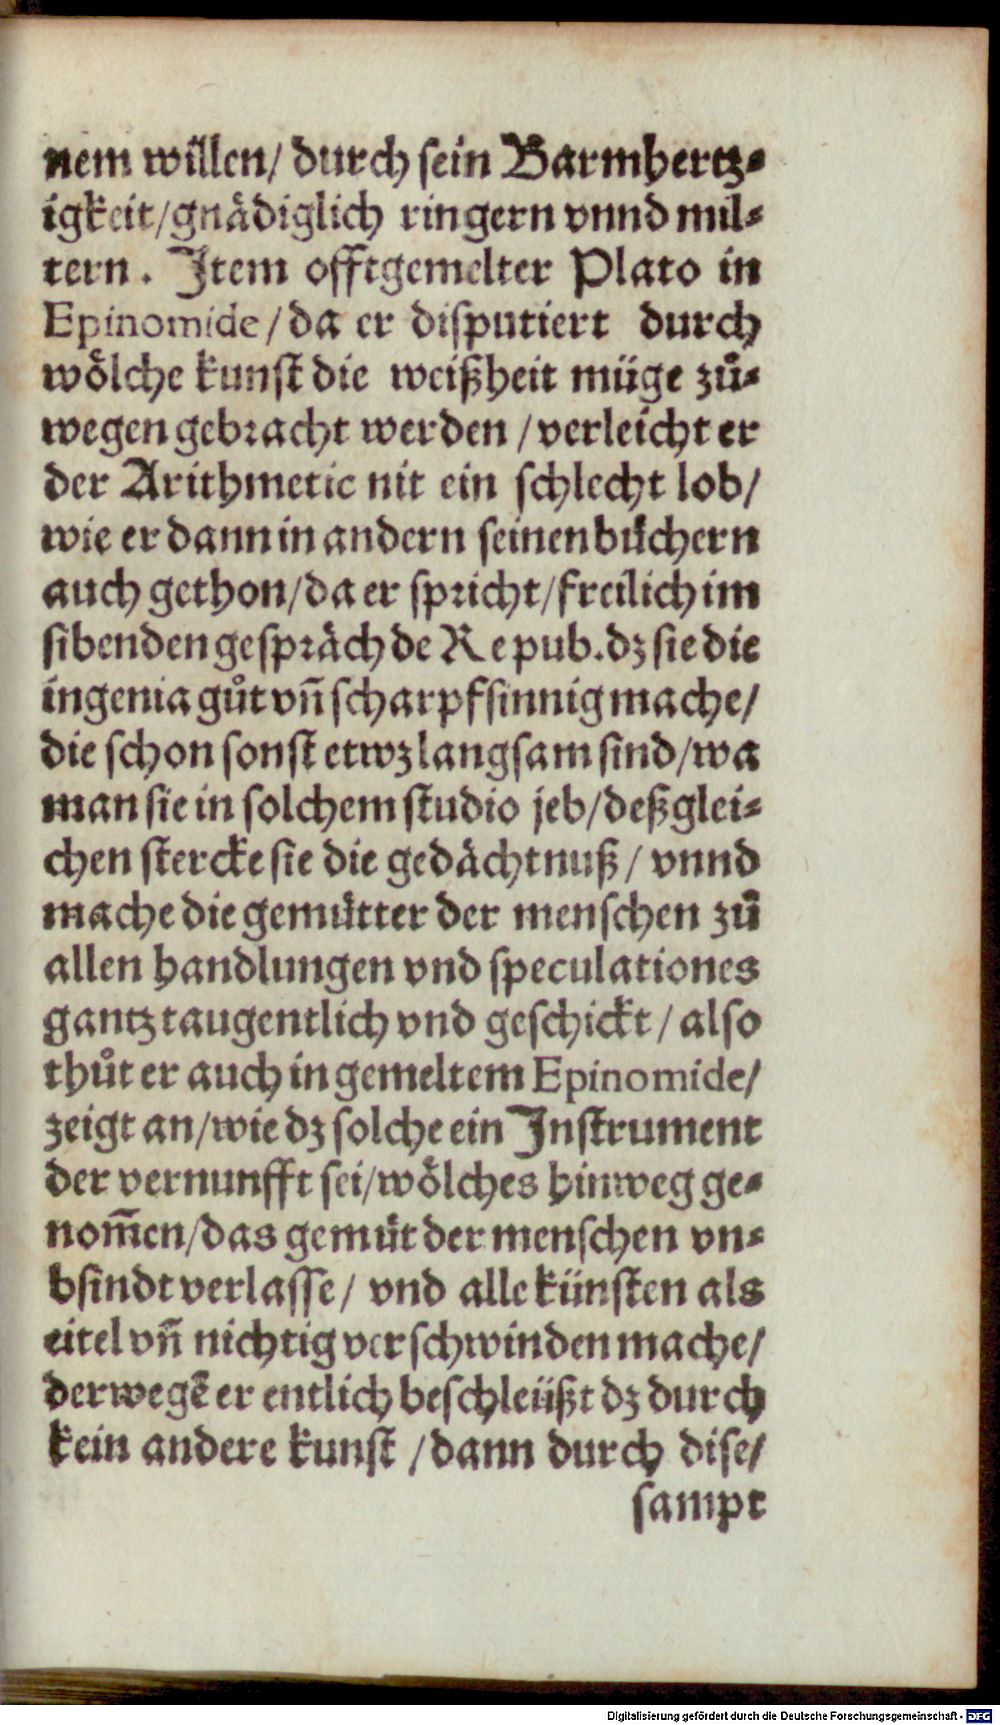 nem willen/ durch sein Barmhertz⸗
igkeit/gnädiglich ringern vnnd mil⸗
tern. Item offtgemelter Plato in
Epinomide/da er disputiert durch
wölche kunst die weißheit müge zů⸗
wegen gebracht werden /verleicht er
der Arithmetic nit ein schlecht lob/
wie er dann in andern seinen bůchern
auch gethon/da er spricht/freilich im
sibenden gespräch de Repub.dz sie die
ingenia gůt vñ scharpfsinnig mache/
die schon sonst etwz langsam sind/wa
man sie in solchem studio jeb/deßglei⸗
chen stercke sie die gedächtnuß/ vnnd
mache die gemütter der menschen zů
allen handlungen vnd speculationes
gantz taugentlich vnd geschickt/ also
thůt er auch in gemeltem Epinomide/
zeigt an/wie dz solche ein Instrument
der vernunfft sei/wölches hinweg ge⸗
nom̃en/das gemüt der menschen vn⸗
bsindt verlasse/ vnd alle künsten als
eitel vñ nichtig verschwinden mache/
derwegẽ er entlich beschleüßt dz durch
kein andere kunst /dann durch dise/
sampt
Digitalisierung gefördert durch die Deutsche Forschungsgemeinschaft - DFG